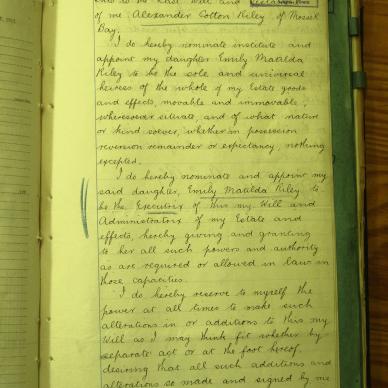 the Last Will and
of me Alexander Colton Riley of Mossel
Bay.
I do hereby nominate institute and
appoint my daughter Emily Matilda
Riley to be the sole and universal
heiress of the whole of my Estate goods
and effects, movable and immovable,
wheresoever situate, and of what nature
or kind soever, whether in possession
reversion remainder or expectancy, nothing
excepted.
I do hereby nominate and appoint my
said daughter, Emily Matilda Riley to
be the Executrix of this my Will and
Administratrix of my Estate and
effects, hereby giving and granting
to her all such powers and authority
as are required or allowed in law in
those capacities.
I do hereby reserve to myself the
power at all times to make such
alterations in or additions to this my
Will as I may think fit whether by
separate act or at the foot hereof,
desiring that all such additions and
alterations so made and signed by me